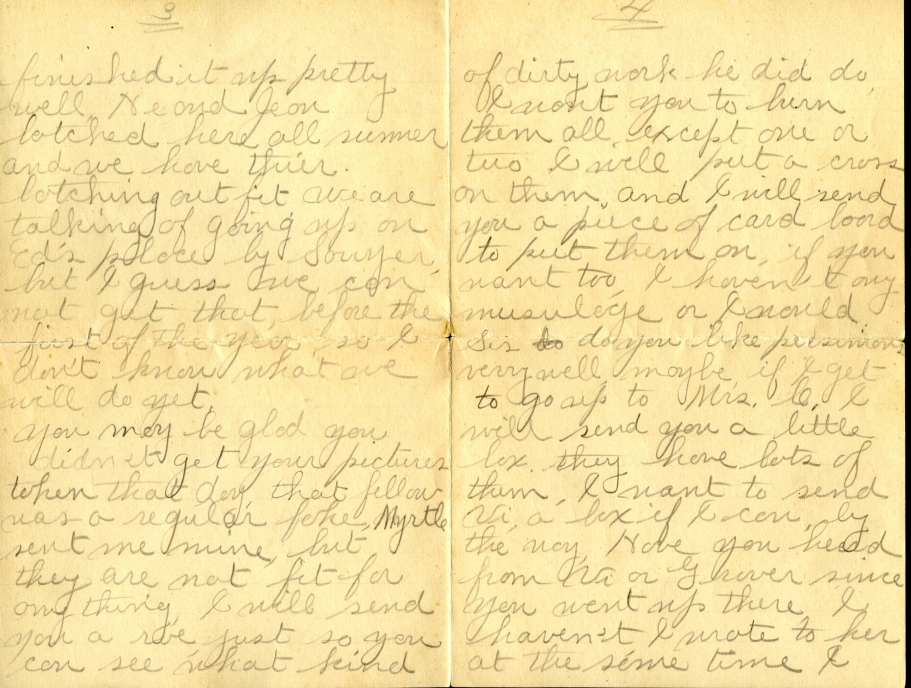 3
finished it up pretty
well He and Jean
batched here all summer
and we have thier
batching out fit we are
talking of going up on
Ed's palace by Sawyer,
but I guess we can
not get that before the
first of the year so I
don't know what we
will do yet,
you may be glad you
didn't get your pictures
taken that day, that fellow
was a regular fake, Myrtle
sent me mine, but
they are not fit for
any thing, I will send
you a few just so you
can see what kind
4
of dirty work he did do
I want you to burn
them all except one or
two I will put a cross
on them, and I will send
you a piece of card board
to put them on, if you
want too, I haven't any
musulage or I would
Sis do you like persimons
verry well maybe if I get
to go up to Mrs. C. I
will send you a little
box they have lots of
them, I want to send
a box if I can, by
the way Have you heard
from or Grover since
you went up there I
haven't I wrote to her
at the same time I